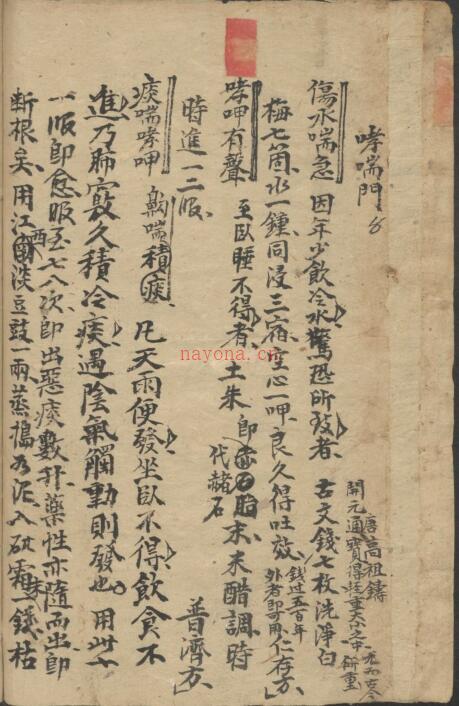 哮喘門
唐高祖鑄
開元通寶得輕重大小之中
傷水喘急 因年少飲冷水驚恐所致者 古文錢七枚洗淨白
梅七箇水一鍾同浸三宿空心一呷良久得吐效 錢过五百年外者即可用 仁存方
哮呷有聲 至臥睡不得者土朱 即 代赭石 末米醋調時
時進一二服 普濟方
痰喘哮呷 齁喘積痰 凡天雨便發坐臥不得飲食不
進乃肺竅久積冷痰遇陰氣觸動則發也 用此
一服即愈服至七八次即出惡痰數升藥性亦隨而出即
断根矣用江西淡豆豉一兩蒸搗为泥入砒霜末一錢枯
nayona.cn